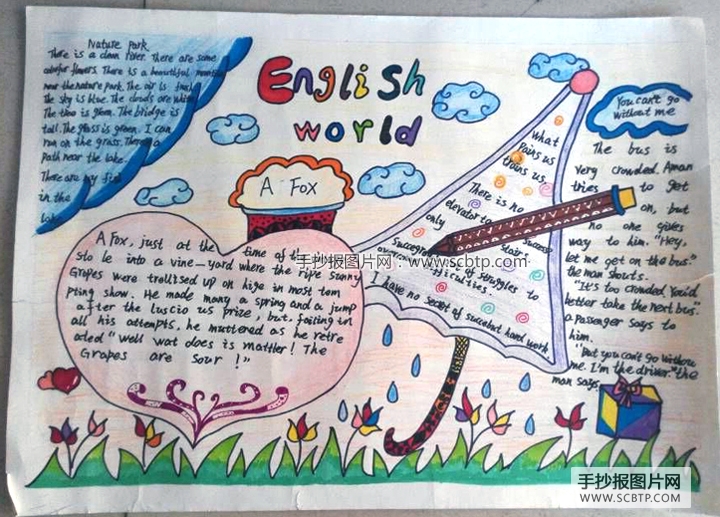 Nature Park
There is a clean river. There are some
colorfur flowers. There is a beautiful
near the nature park. The air is
The sky is blue. The clouds are white
The is green. The bridge is
tall. The glass is green. I can
run on the grass. There
path near the lake.
There are my
in the
English
world
A Fox
A Fox, just at the time of the
sto le into a vine-yard where the ripe sunny
Grapes were trollised up on hige in most tom
pting show. He made many a spring and a jump
after the luscio us prize, but, failing in
all his attempts, he muttered as he retre
aded "well wat does is mattler! The
Grapes are sour!"
what
Pains us
trains us
There is no
elevator to
only stair success
struggles to
I have no secret of hand work
You can't go
without me
The bus is
very crowded. Aman
tries to get
on, but
no one gives
way to him. "Hey,
let me get on the bus."
the man shouts.
"It's too crowded. You'd
better take the next bus."
a Passenger says to
him.
"But you can't go without
me. I'm the driver." the
man says.
手抄报图片网：www.scbtp.com
手抄报图片网
WWW.SCBTP.COM